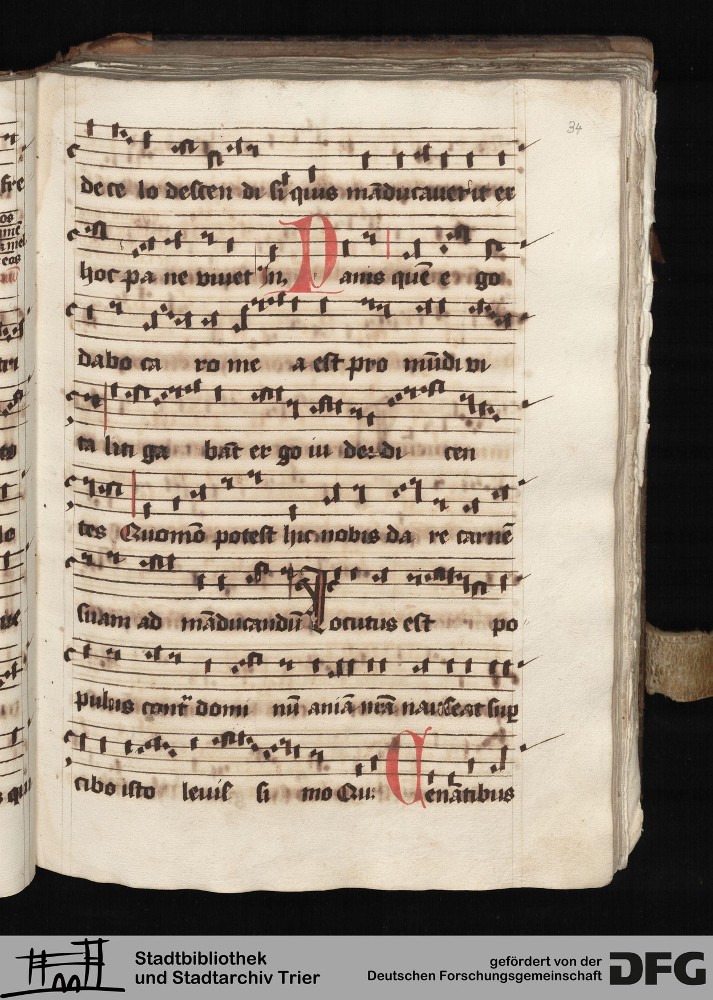 34
de ce lo descen di si quis māducauerit ex
hoc pa ne viuet In. Panis quē e go
dabo ca ro me a est pro mūdi vi
ta liti ga bāt er go iu dei di cen
tes Quomō potest hic nobis da re carnē
suam ad māducandū Locutus est po
pulus domi nū aniā nrā
cibo isto leuis si mo Qui Cenātibus
Stadtbibliothek
und Stadtarchiv Trier
gefördert von der
Deutschen Forschungsgemeinschaft
DFG